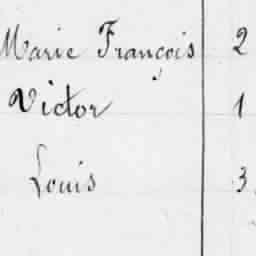 Marie François 2
Victor 1
Louis 3